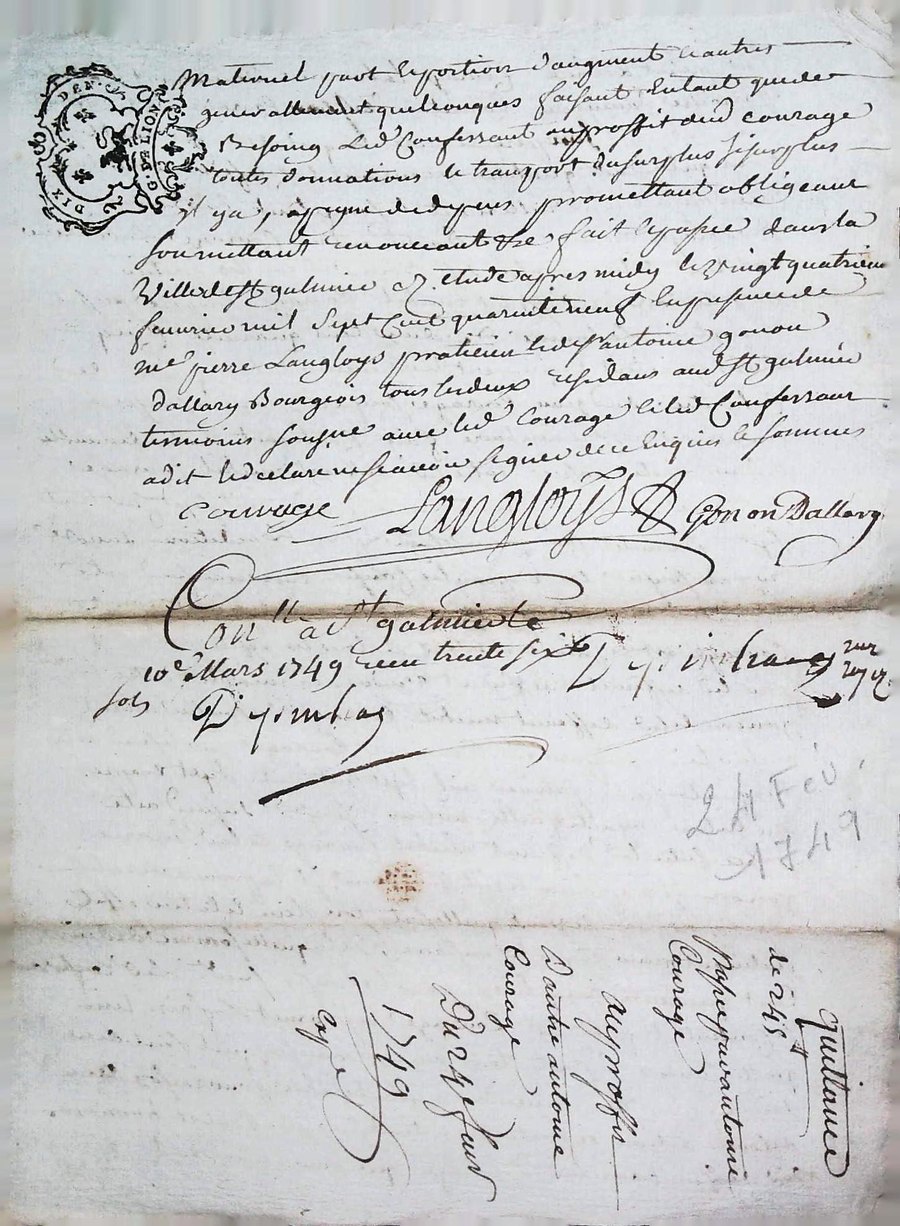 DIX DEN.
G. DE LION
Maternel part et portion d'augment et autres
generallement quelconques faisant Entant que de
Besoing led. Confessant au proffit dud courage
toutes donnations et transport du surplus si surplus
il y a, a peyne de depens promettant obligeant
soumettant renonceant &c fait et passé dans la
Ville de St galmier etude apres midy le vingt quatrieme
feuvrier mil sept Cent quarente neuf En presence de
me pierre Langloys praticien et de sr antoine gonon
Dallary Bourgeois tous les deux residans aud. St galmier
temoins sousne avec led. Courage et led. Confessant
a dit et declaré ne scavoir signer de ce Enquis et sommés
courage Langloys Gonon Dallary
Conllé a St galmier le
10e Mars 1749 receu trente six
sols
24 Fév.
1749
Quittance
de 245 #
Courage
au proffit
D'autre antoine
Courage
Du 24e feuv
1749